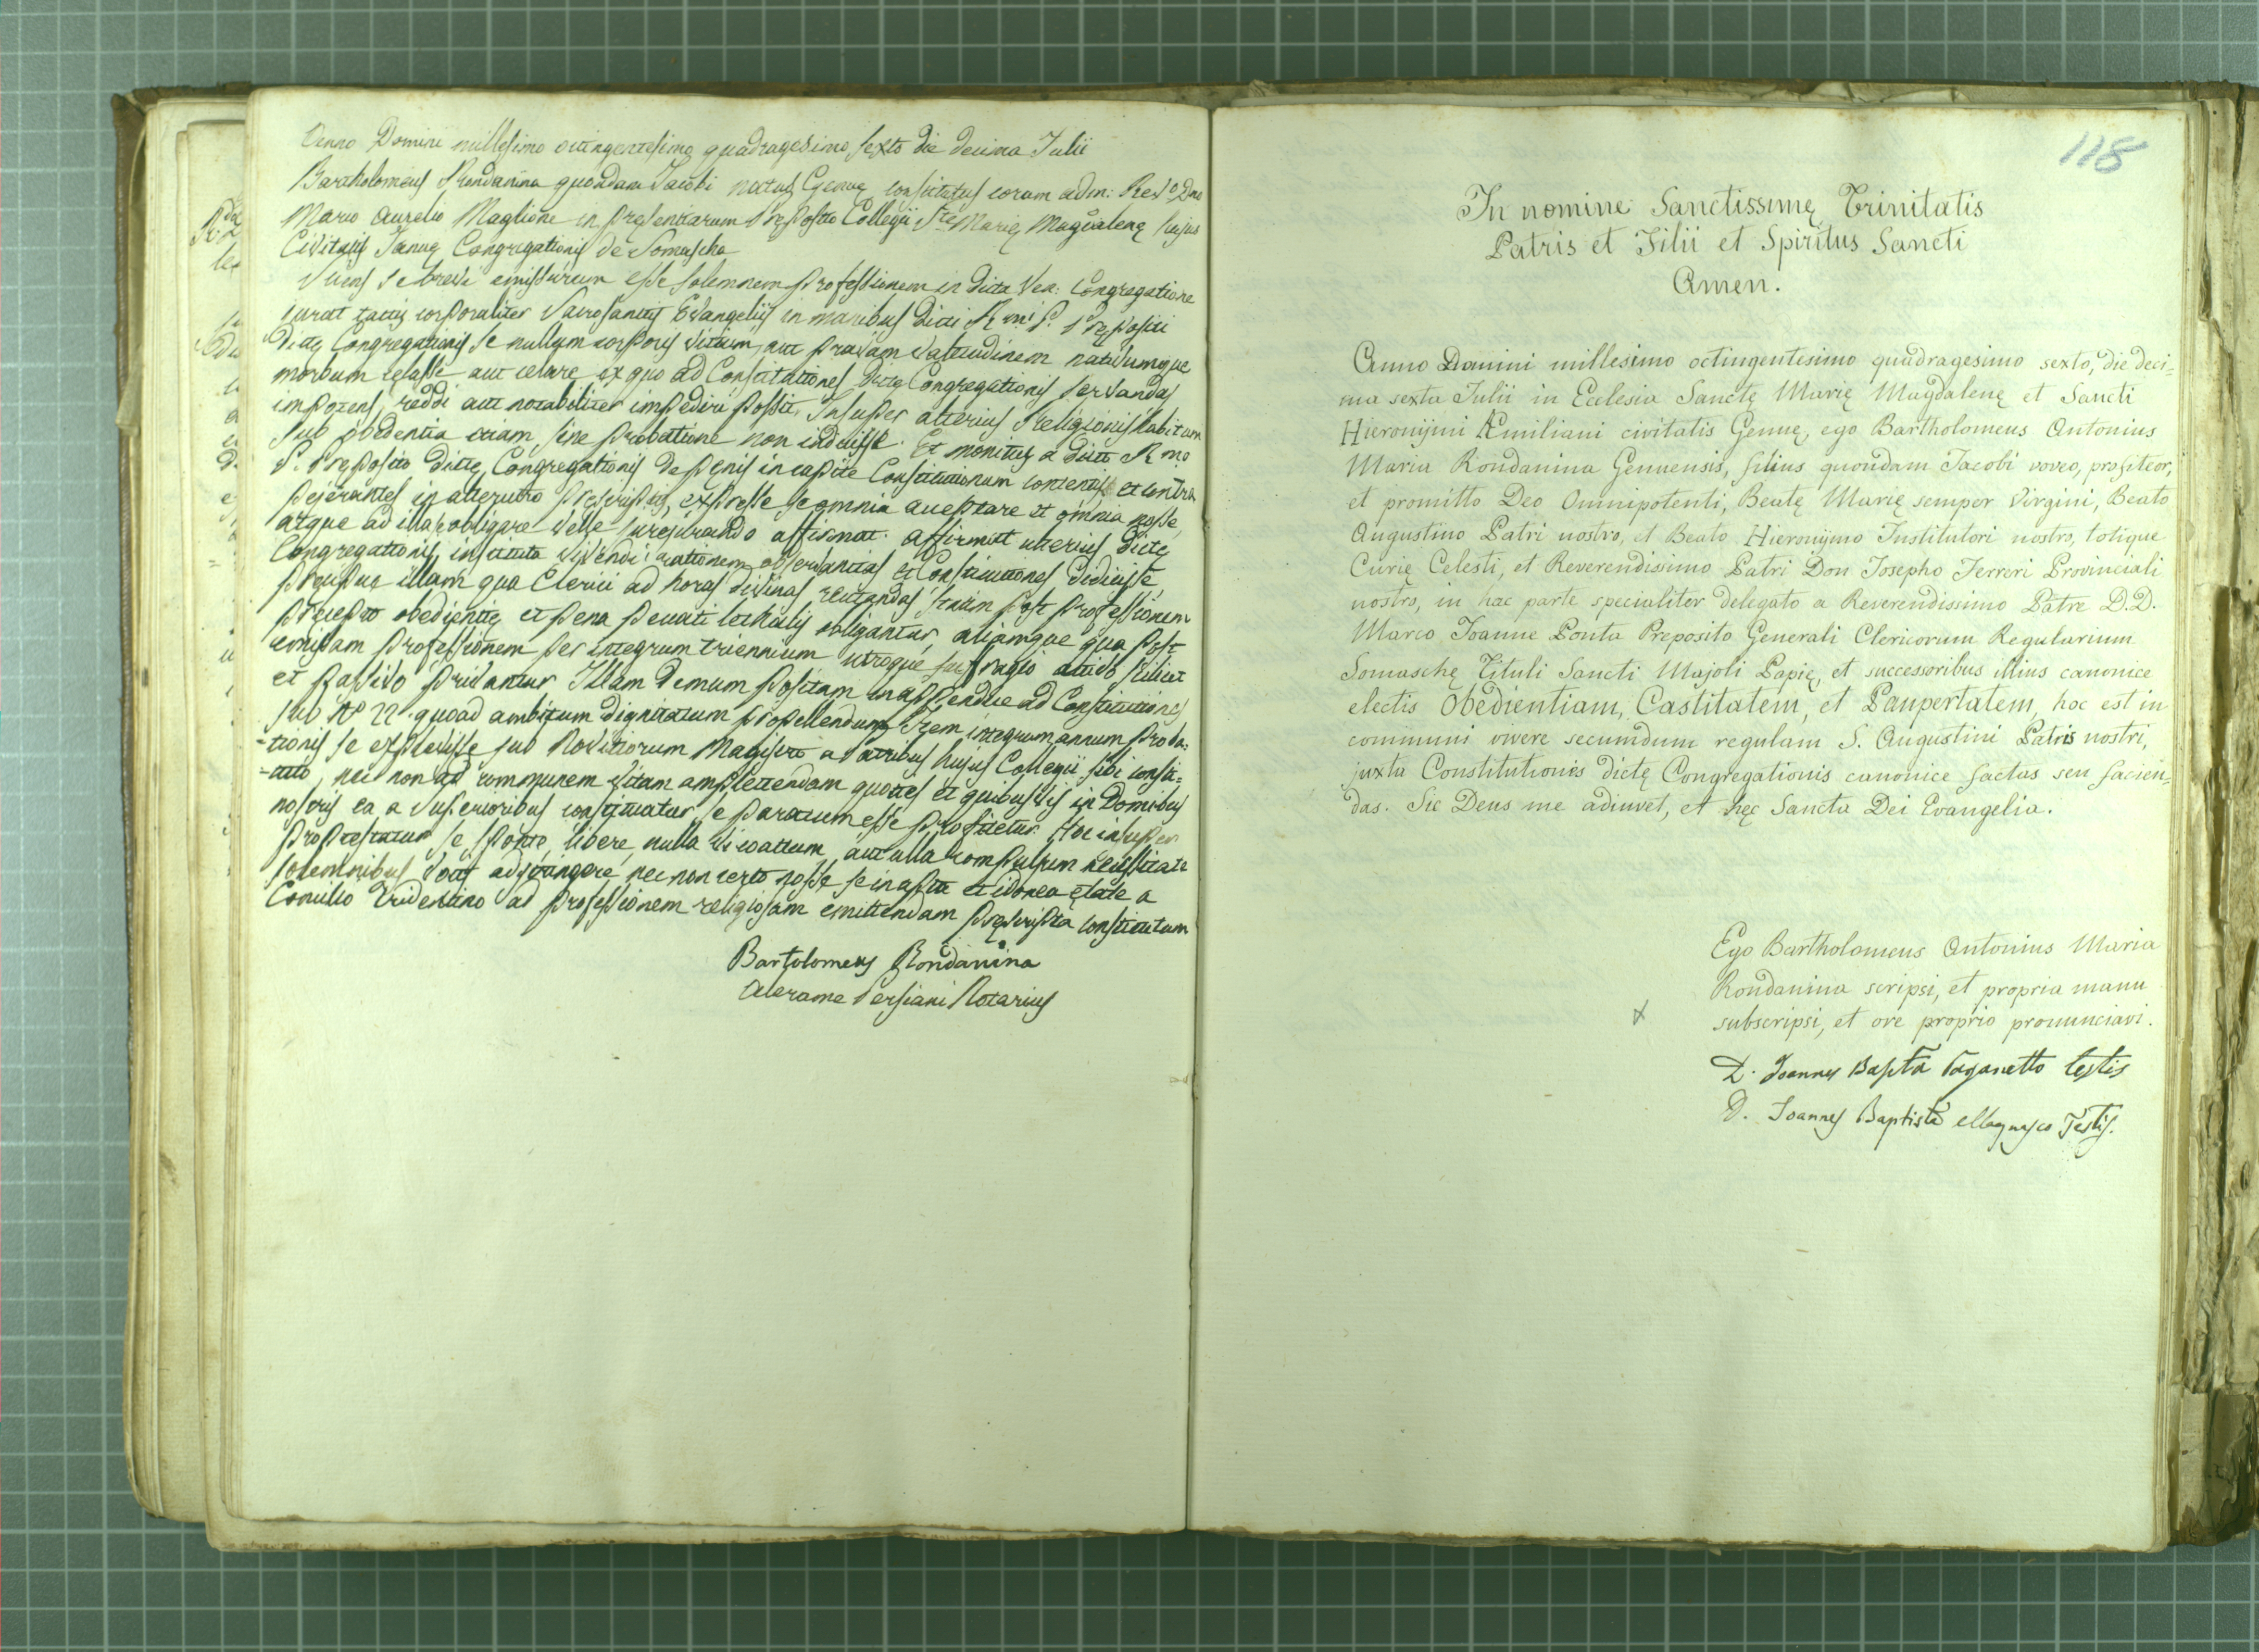 Anno Domini millesimo octingentesimo quadragesimo sexto die decima Julii
Bartholomeus Rondanina quondam Jacobi natus Genuę constitutus coram adm: Rev.o Dno
Marco Aurelio Maglione in presentiarum Pręposito Collegii S.tę Marię Magdalenę hujus
Civitatis Januę Congregationis de Somascha
Sciens se brevi emissurum esse solemnem professionem in dicta Ven: Congregatione
jurat tactis corporaliter Sacrosanctis Evangeliis in manibus dicti R.mi P. Prępositi
Dictę Congregationis se nullum corporis vitium, aut pravam valetudinem nativumque
morbum celasse aut celare ex quo ad Constitutiones dictę Congregationis servandas
impotens reddi aut notabiliter impediri possit. Insuper alterius Religionis habitum
sub obedientia etiam sine probatione non induisse. Et monitus a dicto R.mo
P. Pręposito dictę Congregationis de penis in capite Constitutionum contentis et contra
pejerantes in alterutro pręscriptis, expresse se omnia acceptare et omnia nosse,
atque ad illa se obligare velle jurejurando affirmat. Affirmat ulterius dictę
Congregationis instituta vivendi rationem observantias et Constitutiones didicisse
pręcipue illam qua Clerici ad horas divinas recitandas statim post professionem
pręcepto obedientię et pena peccati lethalis obligantur, aliamque qua post
emissam professionem per integrum triennium utroque suffragio activo scilicet
et passivo privantur Illam demum positam in appendice ad Constitutiones
sub N.o 22. quoad ambitum dignitatum propellendum. Item integrum annum proba=
=tionis se explevisse sub Novitiorum Magistro a Patribus hujus Collegii sibi consti=
=tuto, nec non ad communem vitam amplectendam quoties et quibusvis in Domibus
nostris ea a Superioribus constituatur, se paratum esse profitetur. Hoc insuper
protestatur se sponte, libere, nulla vi coactum, aut ulla compulsum necessitate
solemnibus votis adstringere nec non certo nosse se in apta et idonea ętate a
Concilio Tridentino ad professionem religiosam emittendam pręscripta constitutum
Bartolomeus Rondanina
Alerame Persiani Notarius
118
In nomine Sanctissimę Trinitatis
Patris et Filii et Spiritus Sancti
Amen.
Anno Domini millesimo octingentesimo quadragesimo sexto, die deci=
ma sexta Julii in Ecclesia Sanctę Marię Magdalenę et Sancti
Hieronijmi Æmiliani civitatis Genuę, ego Bartholomeus Antonius
Maria Rondanina Genuensis, filius quondam Jacobi voveo, profiteor,
et promitto Deo Omnipotenti, Beatę Marię semper Virgini, Beato
Augustino Patri nostro, et Beato Hieronijmo Institutori nostro, totique
Curię Celesti, et Reverendissimo Patri Don Josepho Ferreri Provinciali
nostro, in hac parte specialiter delegato a Reverendissimo Patre D.D.
Marco Joanne Ponta Preposito Generali Clericorum Regularium
Somaschę Tituli Sancti Majoli Papię, et successoribus illius canonice
electis Obedientiam, Castitatem, et Paupertatem, hoc est in
communi vivere secumdum regulam S. Augustini Patris nostri,
juxta Constitutionis dictę Congregationis canonice factas seu facien=
das. Sic Deus me adiuvet, et hęc Sancta Dei Evangelia.
Ego Bartholomeus Antonius Maria
Rondanina scripsi, et propria manu
subscripsi, et ore proprio pronunciavi.
D. Joannes Bapta Paganetto testis
D. Joannes Baptista Magnasco Testis.